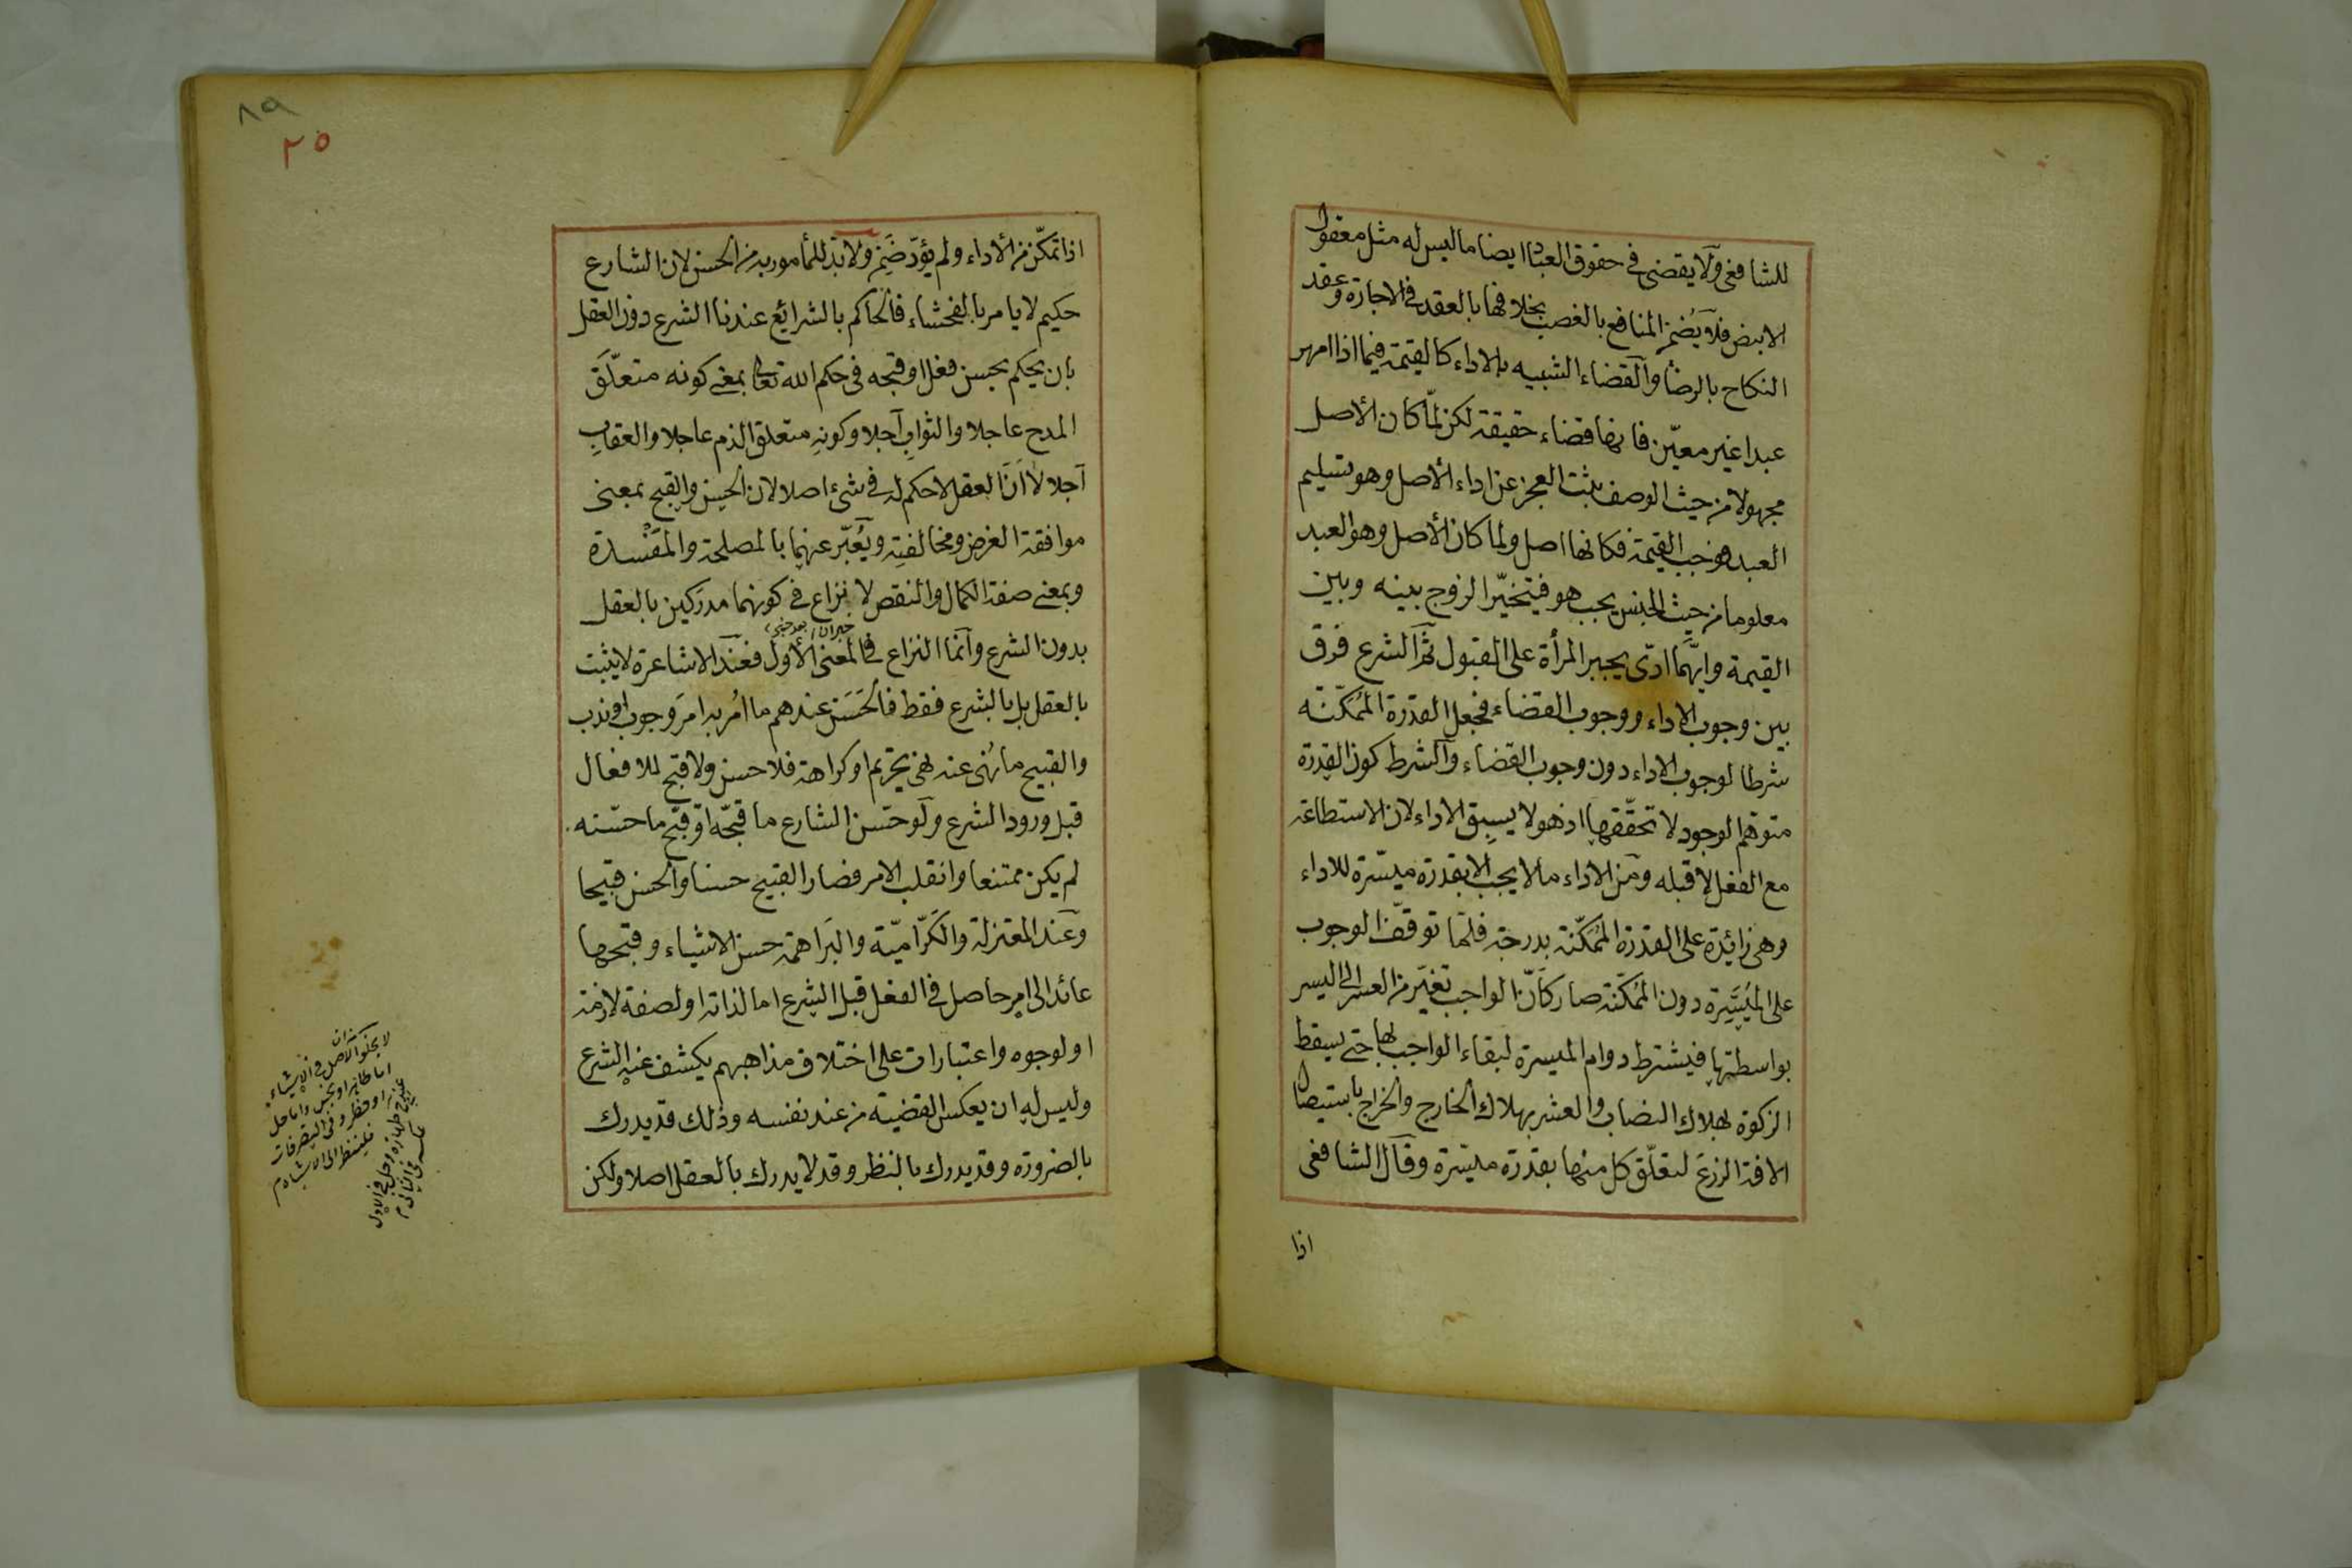 للشافعى ولا يقضى فى حقوق العباد ايضا ما ليس له مثل معقول
الابنص فلا يُضمن المنافع بالغصب بخلافها بالعقد فى الاجارة وعقد
النكاح بالرضا والقضاء الشبيه بالاداء كالقيمة فيما اذا امهر
عبدا غير معيّن فانها قضاء حقيقة لكن لمّا كان الأصل
مجهولا من حيث الوصف يثبت العجز عن اداء الأصل وهو تسليم
العبد فوجب القيمة فكانها اصل ولما كان الأصل وهو العبد
معلوما من حيث الجنس يجب هو فيتخيّر الزوج بينه وبين
القيمة وايّهما ادّى يجبر المرأة على القبول ثم الشرع فرق
بين وجوب الاداء ووجوب القضاء فجعل القدرة المُمَكّنة
شرطا لوجوب الاداء دون وجوب القضاء والشرط كون القدرة
متوهّم الوجود لا تحقّقها اذ هو لا يسبق الاداء لان الاستطاعة
مع الفعل لا قبله ومن الاداء ما لا يجب الا بقدرة ميسّرة للاداء
وهى زائدة على القدرة الممَكّنة بدرجة فلمّا توقّف الوجوب
على المُيَسِّرة دون المُمكّنة صار كأنّ الواجب تغيّر من العسر الى اليسر
بواسطتها فيشترط دوام الميسرة لبقاء الواجب بها حتى يسقط
الزكوة بهلاك النصاب والعشر بهلاك الخارج والخراج باستيصال
الافة الزرع لتعلّق كل منها بقدرة ميسّرة وقال الشافعى
اذا
٨٩
٢٥
اذا تمكّن من الأداء ولم يؤدّ ضَمِن ولا بدّ للمأمور به من الحسن لان الشارع
حكيم لا يامر بالفحشاء فالحاكم بالشرائع عندنا الشرع دون العقل
بان يحكم بحسن فعل او قبحه فى حكم الله تعالى بمعنى كونه متعلّق
المدح عاجلا والثوابِ آجلا وكونِه متعلق الذم عاجلا والعقابِ
آجلا لا اَنّ العقل لا حكم له فى شىء اصلا لان الحسن والقبح بمعنى
موافقة الغرض ومخالفتِه ويُعَبّر عنهما بالمصلحة والمَفْسدة
وبمعنى صفة الكمال والنقص لا نزاع فى كونهما مدرَكين بالعقل
بدون الشرع وانما النزاع فى المعنى الأول فعند الاشاعرة لا يثبت
بالعقل بل بالشرع فقط فالحَسَن عندهم ما اُمر به امرَ وجوب او ندب
والقبيح ما نُهى عنه نهى تحريم او كراهة فلا حسن ولا قبح للافعال
قبل ورود الشرع ولو حسّن الشارع ما قبّحه او قبّح ما حسّنه
لم يكن ممتنعا وانقلب الامر فصار القبيح حسنا والحسن قبيحا
وعند المعتزلة والكَرّاميّة والبَراهمة حسن الاشياء وقبحها
عائد الى امر حاصل فى الفعل قبل الشرع اما لذاته او لصفة لازمة
او لوجوه واعتبارات على اختلاف مذاهبهم يكشف عنه الشرع
وليس له ان يعكس القضيّة من عند نفسه وذلك قد يدرك
بالضرورة وقد يدرك بالنظر وقد لا يدرك بالعقل اصلا ولكن
لا يخلو الاصل فى الاشياء